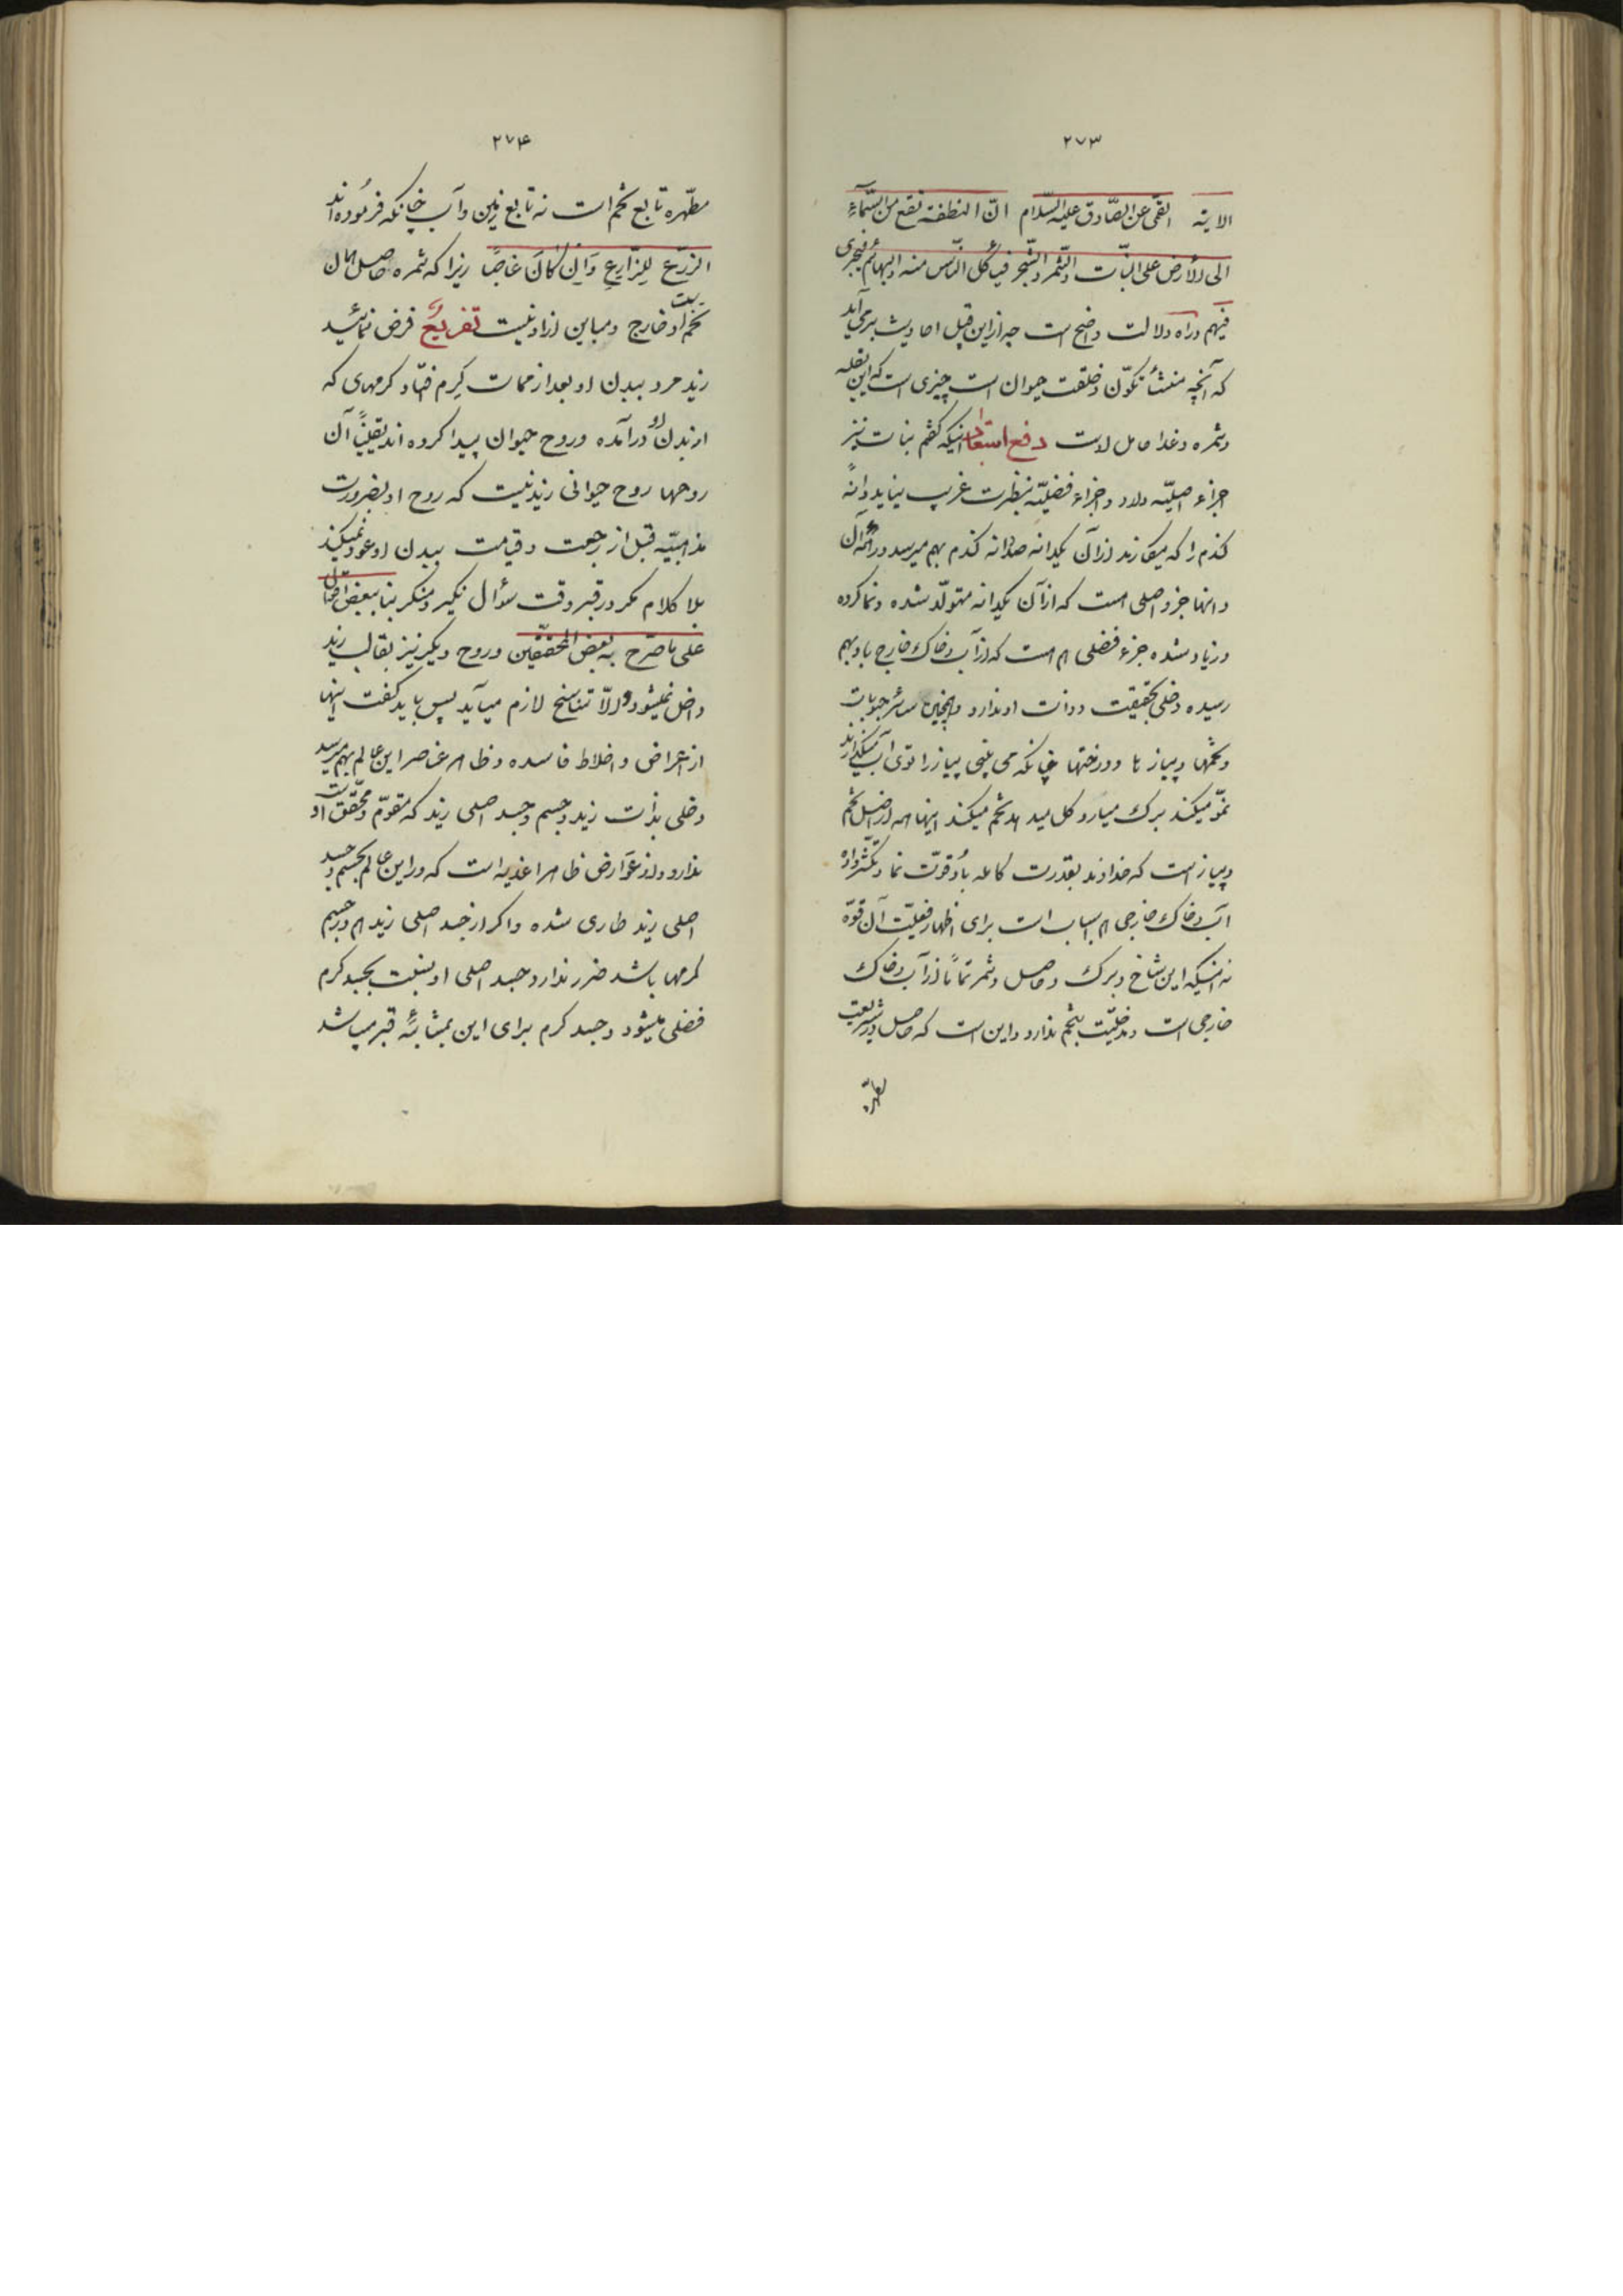 ۲۷۳
الایة القمی عن الصّادق علیه السّلام انّ النطفة تقع من السّمآءِ
الی الارض علی النبّات والثّمر والشّجر فیأکل النّاس منه والبهائم فیجری
فیهم وراه دلالت واضح است چه از این قبیل احادیث برمی‌آید
که آنچه منشأ تکوّن و خلقت حیوان است چیزی است که این بقله
وثمره وغذا حامل اوست دفع استبعاد اینکه گفتم نباتات نیز
اجزاء اصلیّه دارد و اجزاء فضلیّه بنظرت غریب ننماید دانهٔ
گندم را که میکارند از آن یکدانه صد دانه گندم بهم میرسد در همه آن
دانها جزو اصلی هست که از آن یکدانه متولّد شده و نما کرده
و زیاد شده و جزء فضلی هم هست که از آب و خاک خارج باو بهم
رسیده دخلی بحقیقت و ذات او ندارد و همچنین سائر حبوبات
وتخمها و پیازها و درختها چنانکه می بینی پیاز را توی آب میگذارند
نموّ میکند برگ میآرد گل میدهد تخم میکند اینها همه از اصل تخم
و پیاز است که خداوند بقدرت کامله باو قوّت نما و تکثّر داده
آب و خاک خارجی هم اسباب است برای اظهار فعلیّت آن قوّه
نه اینکه این شاخ و برگ و حاصل و ثمر تماماً از آب و خاک
خارجی است و مدخلیّت بتخم ندارد و این است که حاصل در شریعت
مطهّره
۲۷۴
مطهّره تابع تخم است نه تابع زمین و آب چنانکه فرموده‌اند
الزّرع للِزّارِعِ وَاِن کانَ غاصباً زیرا که ثمره و حاصل همان
تخم است و خارج و مباین از او نیست تفریعٌ فرض نمائید
زید مرد ببدن او بعد از ممات کرم فتاد کرمهای که
از بدن او درآمده و روح حیوان پیدا کرده اند یقیناً آن
روحها روح حیوانی زید نیست که روح او بضرورت
مذهبیّه قبل از رجعت و قیامت ببدن او عود نمیکند
بلا کلام مگر در قبر وقت سؤال نکیر و منکر بنا ببعض احتمال
علی ما صرّح به بعض المحقّقین و روح دیگر نیز بقالب زید
داخل نمیشود والّا تناسخ لازم میآید پس باید گفت اینها
از اعراض و اخلاط فاسده و ظاهر عناصر این عالم بهم میرسد
دخلی بذات زید و جسم و جسد اصلی زید که مقوّم و محقّق اوست
ندارد و از عوارض ظاهر اغذیه است که در این عالم بجسم و جسد
اصلی زید طاری شده و اگر از جسد اصلی زید هم در جسم
کرمها باشد ضرر ندارد جسد اصلی او بنسبت بجسد کرم
فضلی میشود و جسد کرم برای این بمثابهٔ قبر میباشد